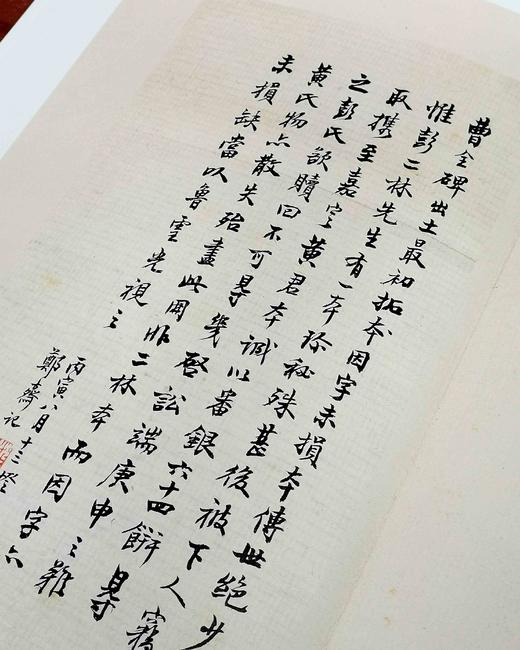 曹全碑出土最初拓本因字未損本傳世絕少
惟彭二林先生有一本珍秘殊甚後被下人竊
取攜至嘉定黃君本識以番銀六十四餅易
之彭氏欲贖回不可得幾啓訟端庚申之難
黃氏物亦散失殆盡此冊非二林本而因字亦
未損缺當以魯靈光視之
丙寅八月十三燈
鄭齋記